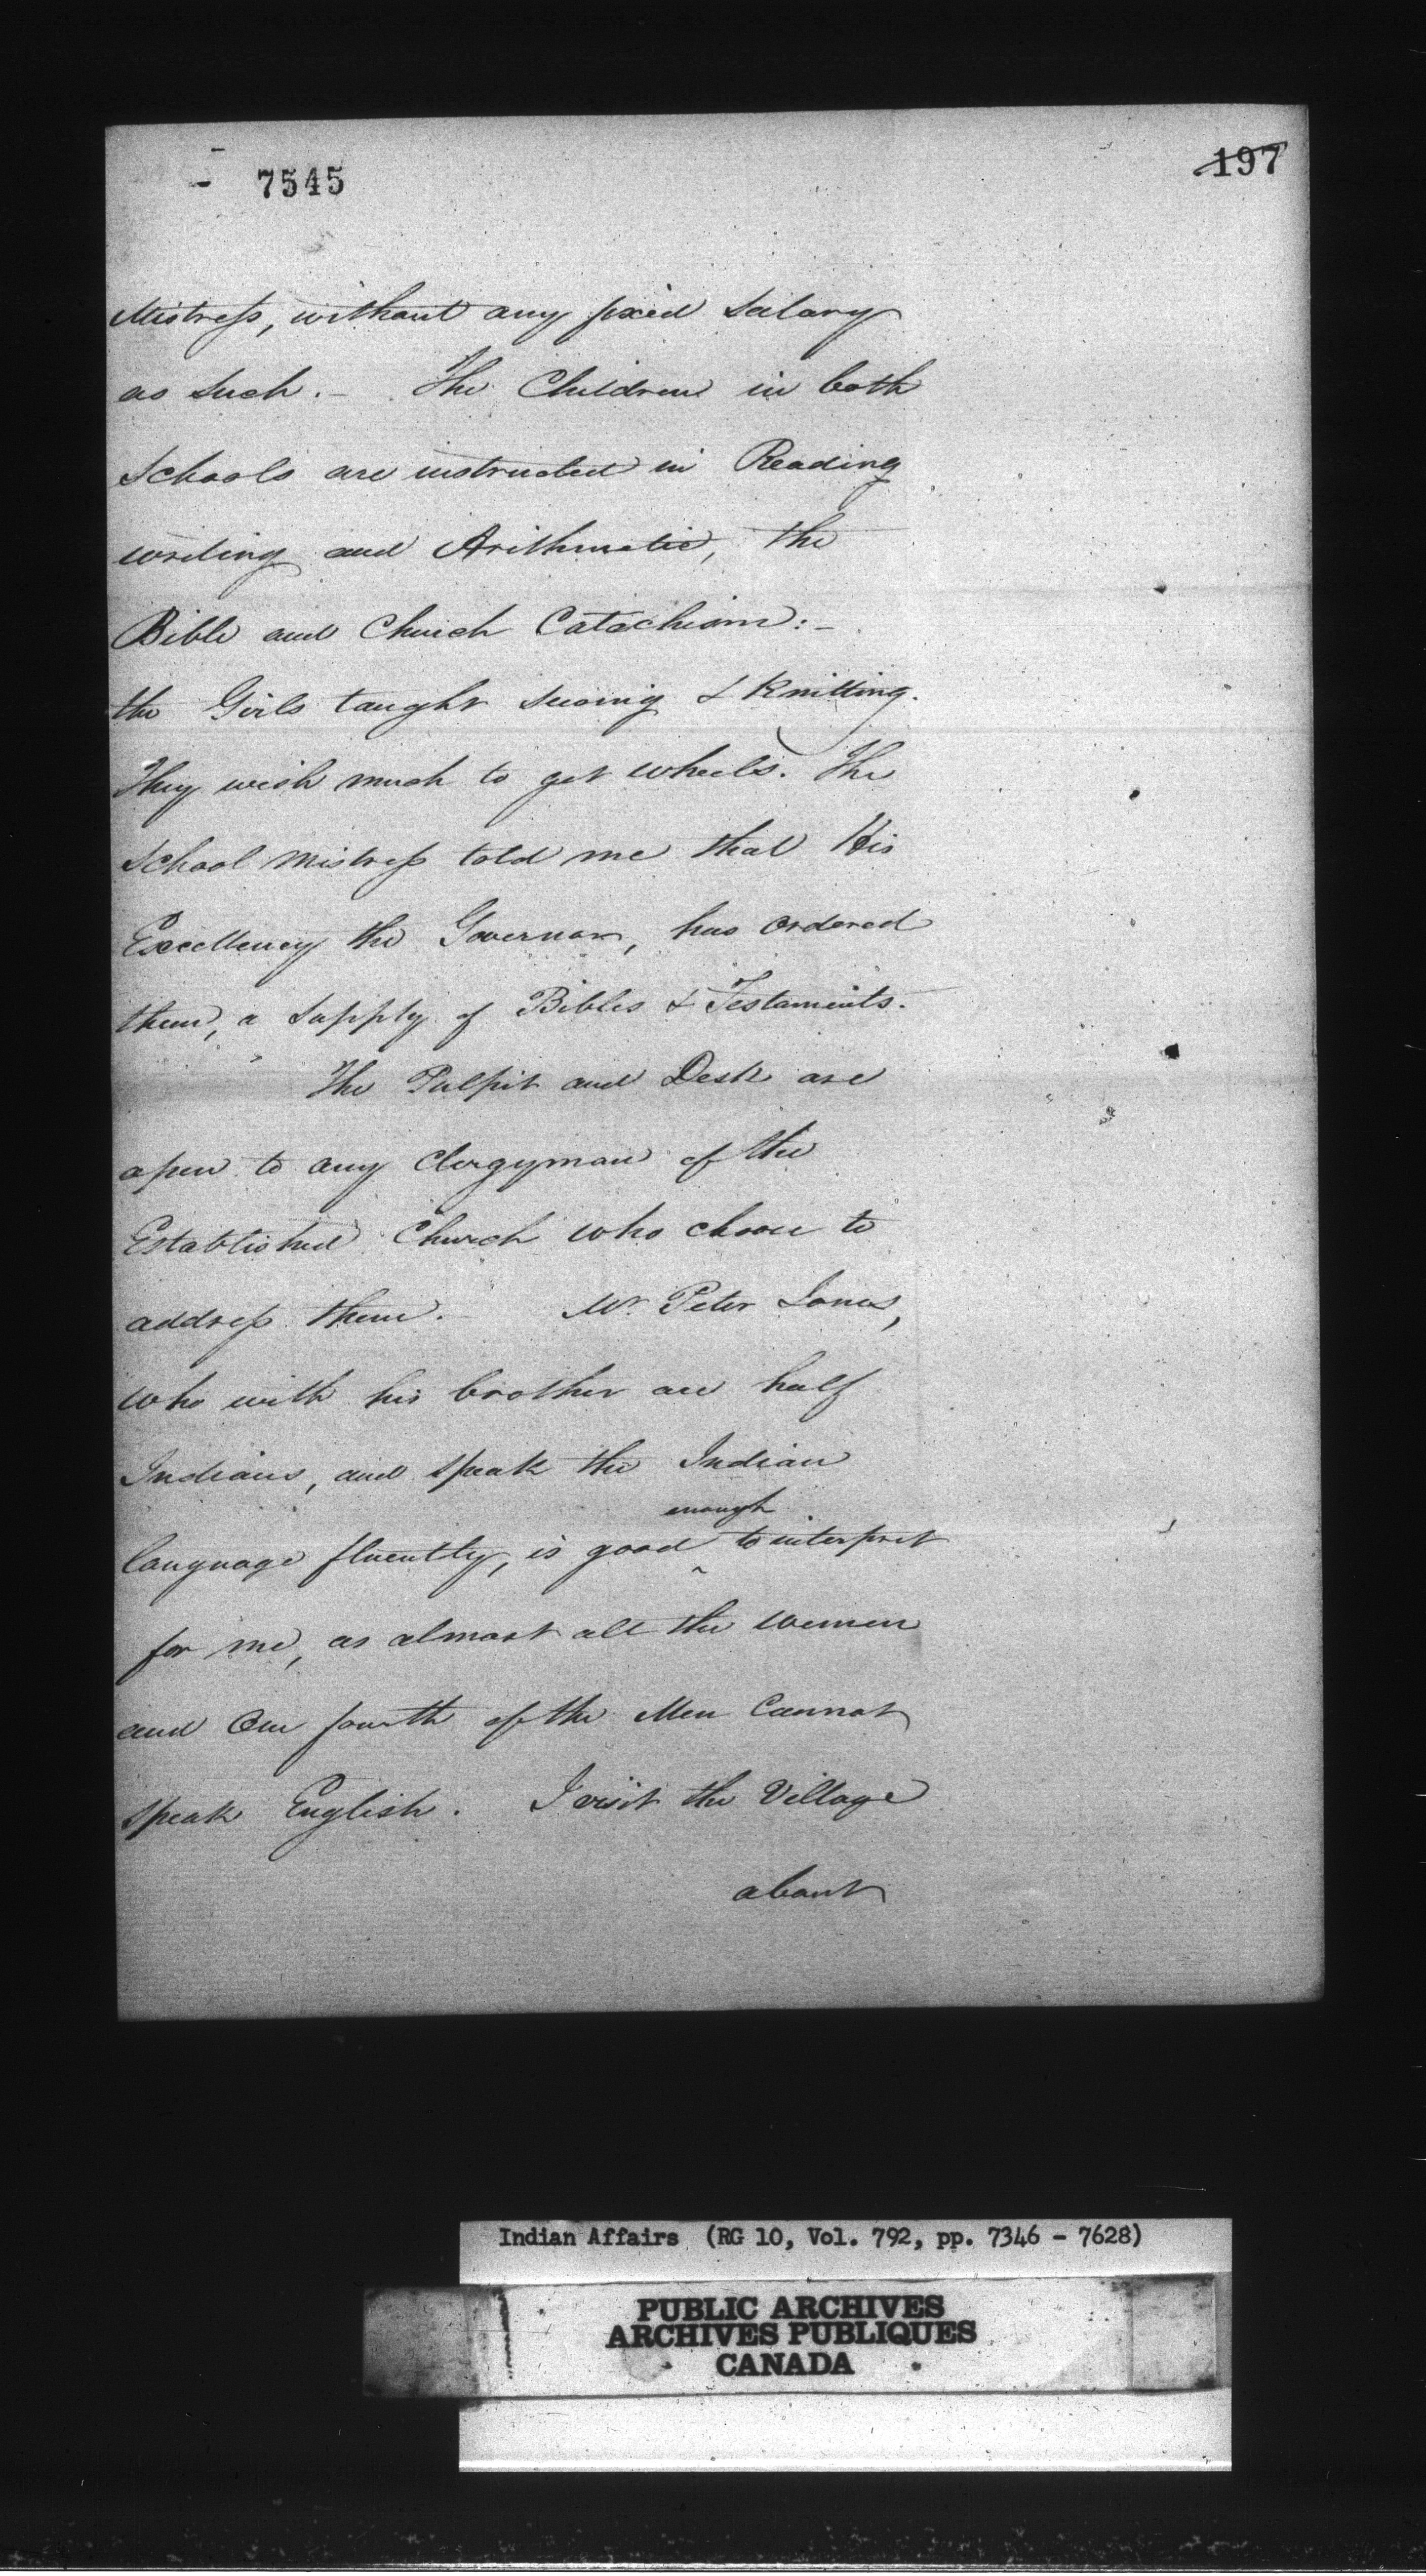 7545
197
Mistress, without any fixed Salary
as such. - The Children in both
Schools are instructed in Reading
writing and Arithmatic, the
Bible and Church Catachism: -
the Girls taught sewing & Knitting.
They wish much to get wheels. The
School Mistress told me that His
Excellency the Governor, has ordered
them, a supply of Bibles & Testaments.
The Pulpit and Desk are
open to any Clergyman of the
Established Church who choose to
address them. - Mr. Peter Jones,
who with his brother are half
Indians, and speak the Indian
enough
language fluently, is good ^ to interpret
for me, as almost all the women
and One fourth of the Men Cannot
speak English. I visit the Village
about
Indian Affairs (RG 10, Vol. 792, pp. 7346 - 7628)
PUBLIC ARCHIVES
ARCHIVES PUBLIQUES
CANADA